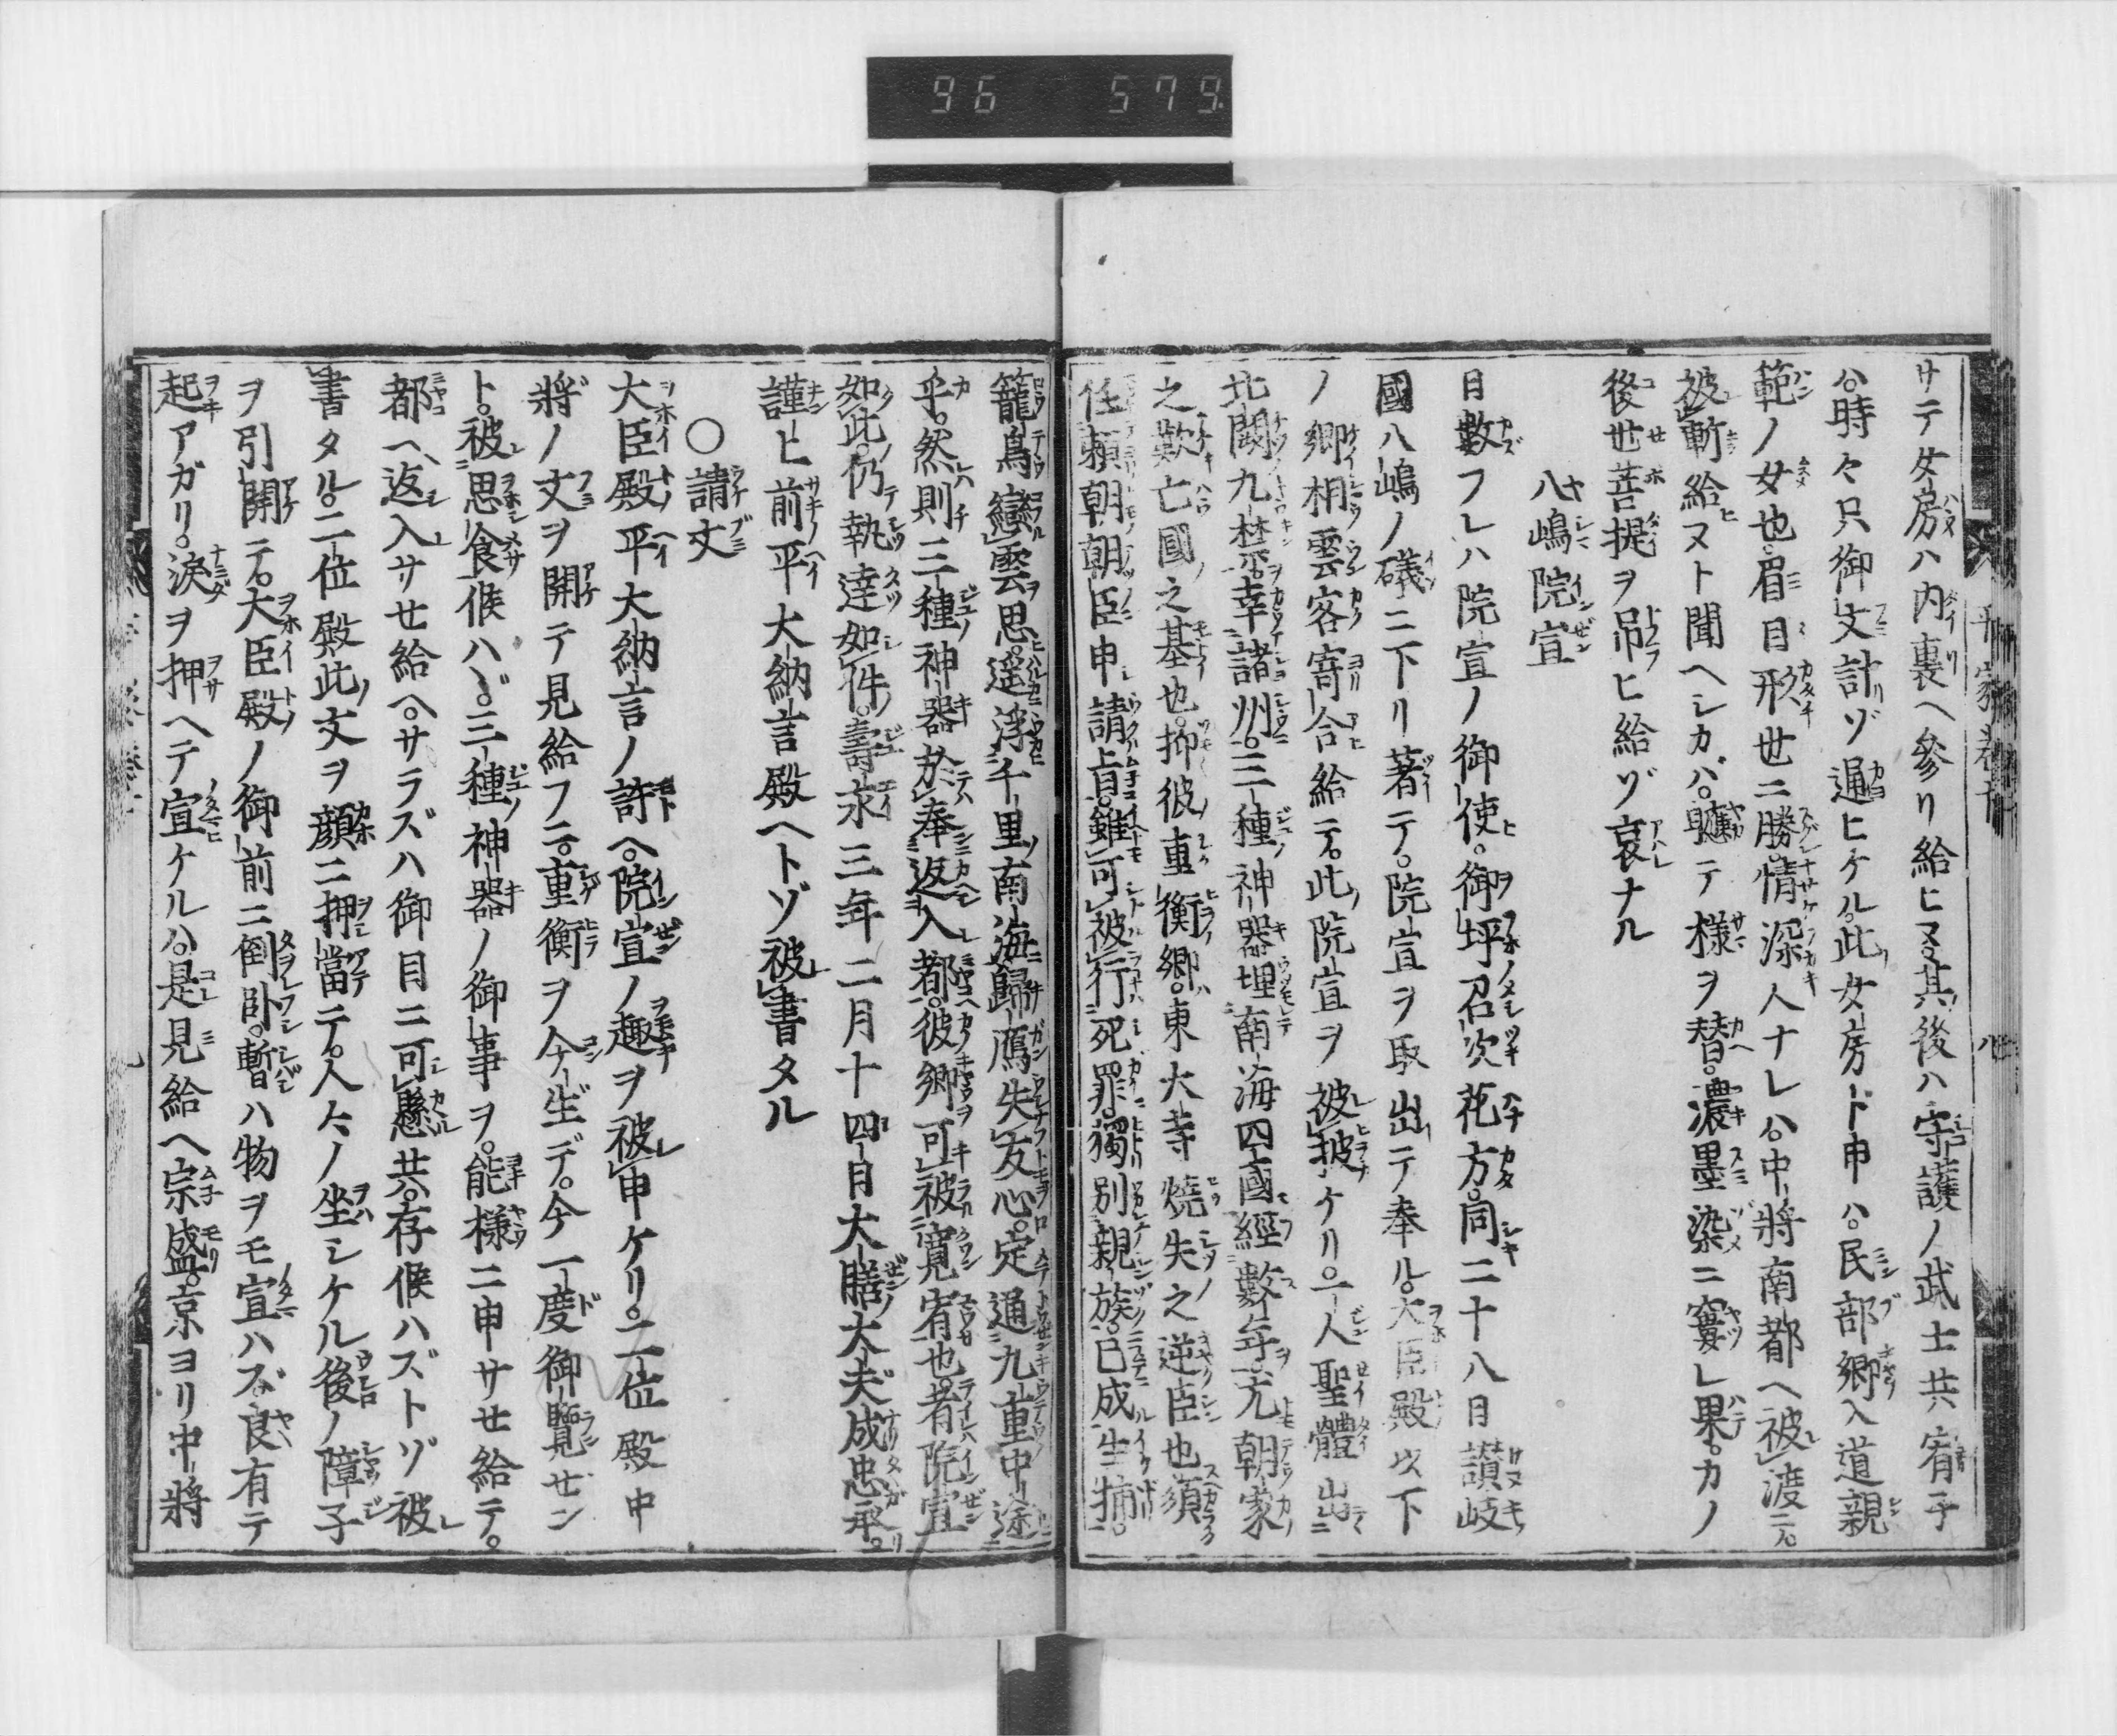 96 579
サテ女房ハ内裏ヘ參リ給ヒヌ其後ハ守護ノ武士共宥子
ハ時々只御文計ゾ通ヒケル此女房ト申ハ民部卿入道親
範ノ女也眉目形世ニ勝情深人ナレハ中將南都ヘ被渡テ
被斬給ヌト聞ヘシカハ聽テ樣ヲ替濃墨染ニ窶レ果カノ
後世菩提ヲ吊ヒ給ゾ哀ナル
八嶋院宣
日數フレハ院宣ノ御使御坪召次花方同二十八日讃岐
國八嶋ノ礒ニ下リ著テ院宣ヲ取出テ奉ル大臣殿以下
ノ卿相雲客寄合給テ此院宣ヲ被披ケリ一人聖體出
北闕九禁幸諸州三種神器埋南海四國經數年尤朝家
之歎亡國之基也抑彼重衡卿東大寺燒失之逆臣也須
任頼朝朝臣申請旨雖可被行死罪獨別親族已成生捕
籠鳥戀雲思遥浮千里南海歸鴈失友心定通九重中途
乎然則三種神器於奉返入都彼卿可被寛宥也者院宣
如此仍執達如件壽永三年二月十四日大膳大夫成忠承
謹上前平大納言殿ヘトゾ被書タル
〇請文
大臣殿平大納言ノ許ヘ院宣ノ趣ヲ被申ケリ二位殿中
將ノ文ヲ開テ見給フニ重衡ヲ今生デ今一度御覽ゼン
ト被思食候ハヾ三種神器ノ御事ヲ能樣ニ申サセ給テ
都ヘ返入サセ給ヘサラズハ御目ニ可懸共存候ハズトゾ被
書タル二位殿此文ヲ顔ニ押當テ人々ノ坐シケル後ノ障子
ヲ引開テ大臣殿ノ御前ニ倒臥暫ハ物ヲモ宣ハズ良有テ
起アガリ涙ヲ押ヘテ宣ケルハ是見給ヘ宗盛京ヨリ中將